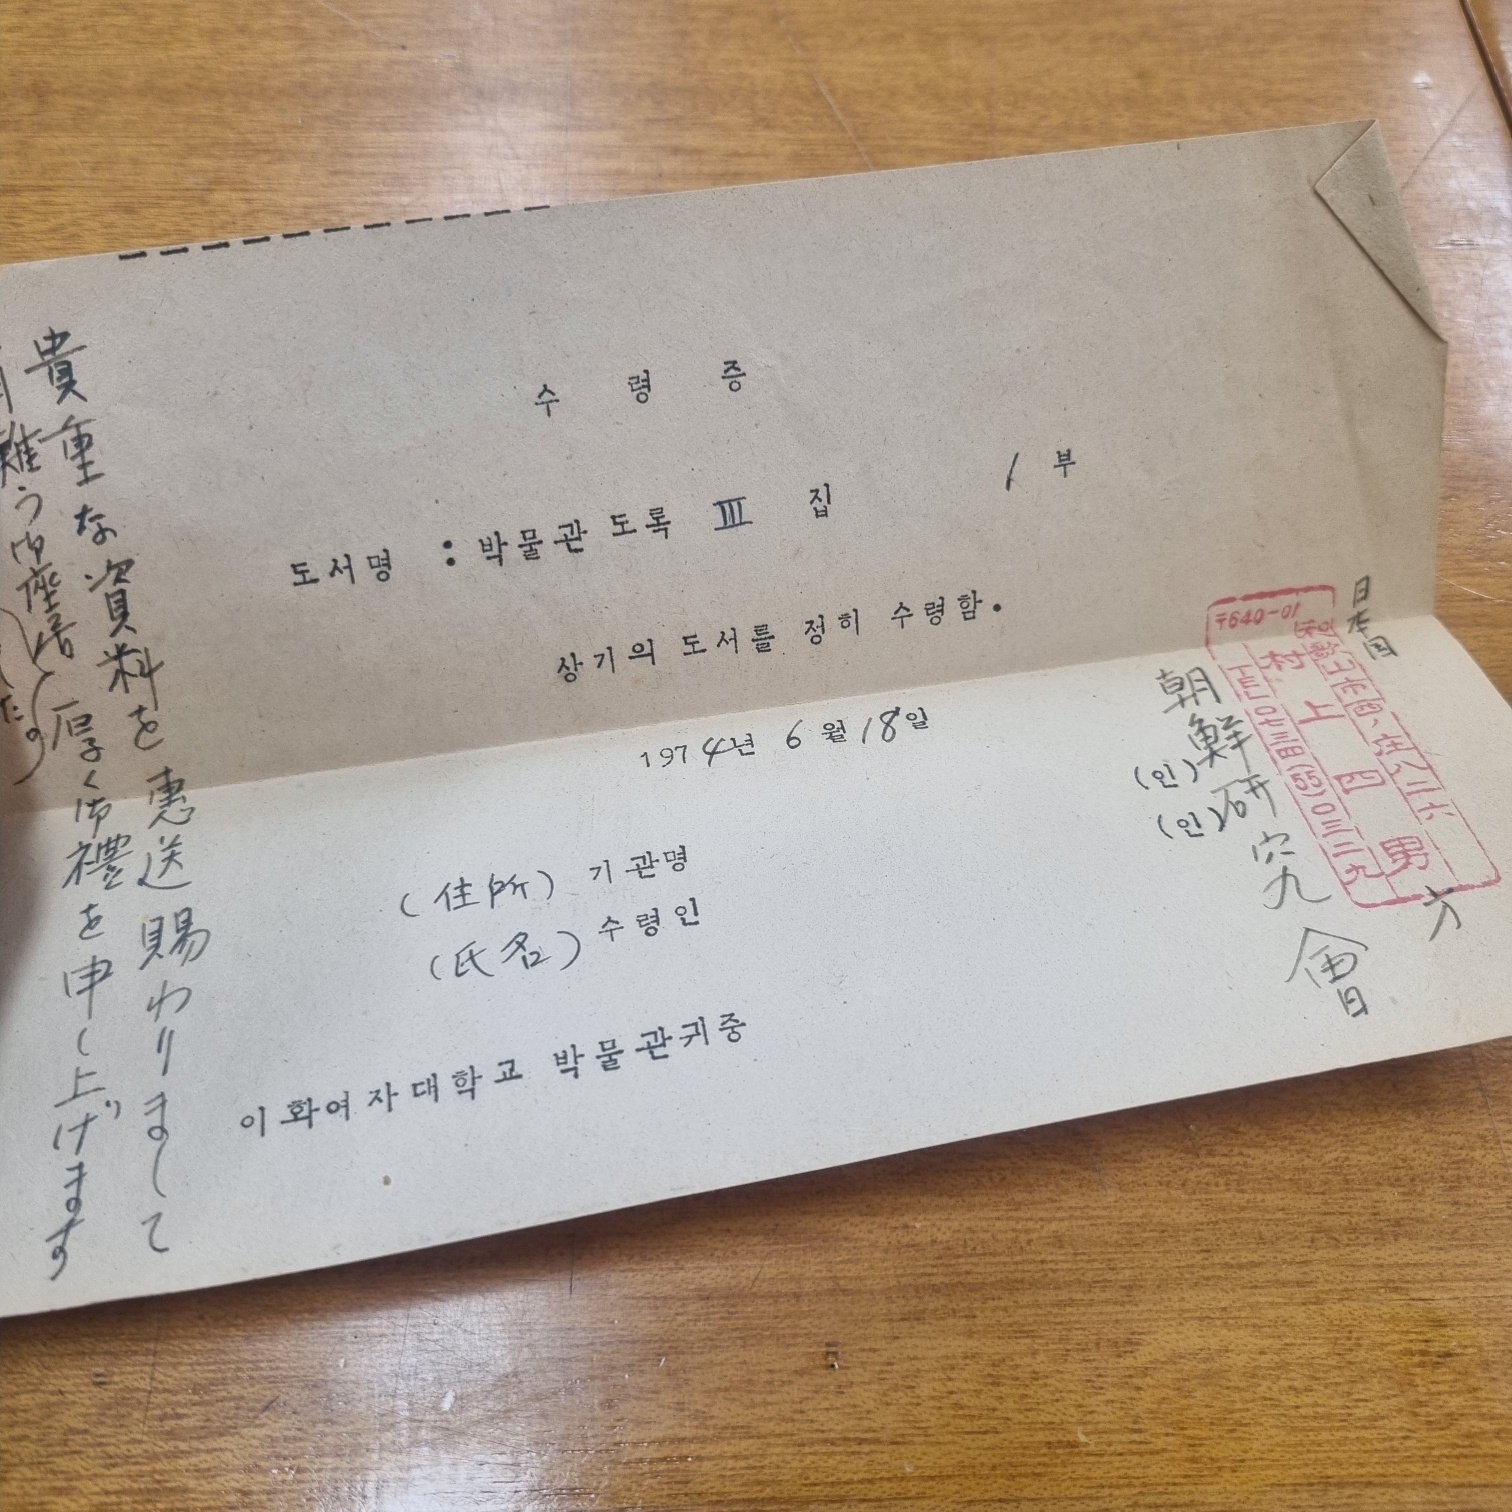 수 령 증
도서명 : 박물관 도록 Ⅲ 집 1 부
상기의 도서를 정히 수령함.
1974년 6월 18일
(住所) 기관명 (인)
(氏名) 수령인 (인)
이화여자대학교 박물관귀중
日本国
〒640-01
村上四男
方
朝鮮研究會
貴重な資料を惠送賜わりまして
難う御座居
厚く御禮を申し上げます